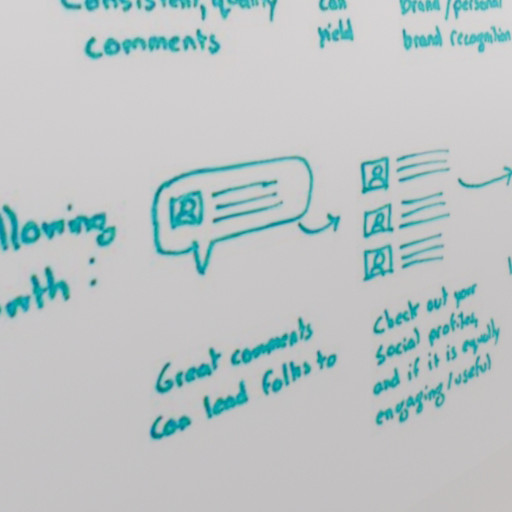 Consistent, quality
comments
can
yield
brand/personal
brand recognition
Great comments
can lead folks to
Check out your
social profiles,
and if it is equally
engaging/useful